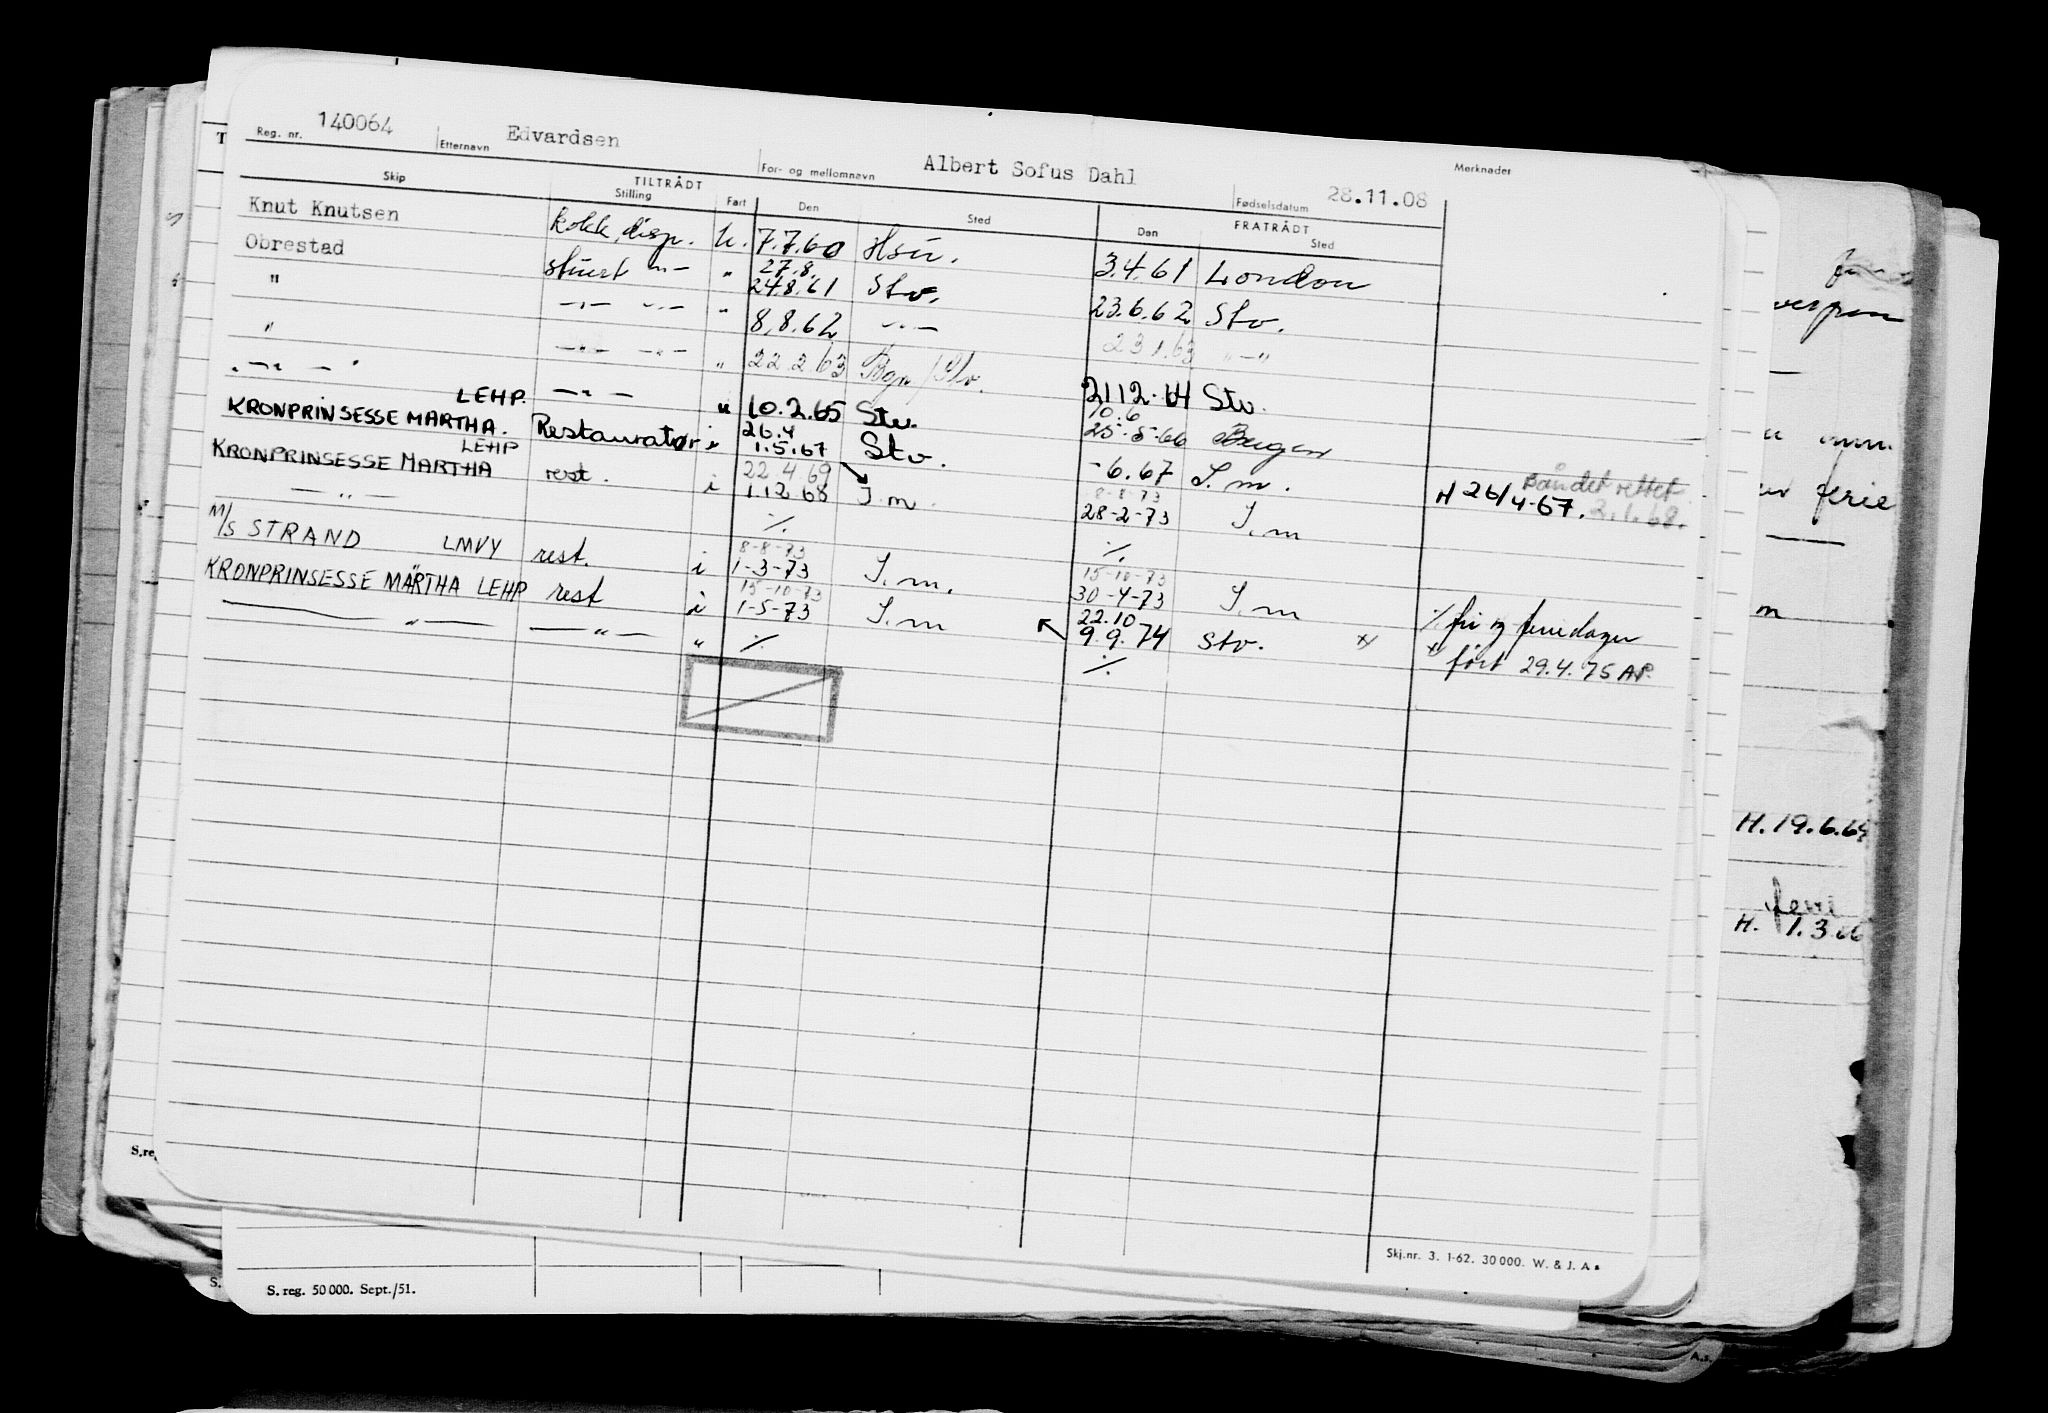 Reg. nr. 140064 Etternavn Edvardsen For- og mellomnavn Albert Sofus Dahl Fødselsdatum 28.11.08 Merknader
Skip TILTRÅDT Stilling Fart Den Sted FRATRÅDT Den Sted
Knut Knutsen kokk, disp. u. 7.7.60 Hsu. 3.4.61 London
Obrestad stuert -"- " 27.8. 24.8.61 Stv. 23.6.62 Stv.
" -"- -"- " 8.8.62 -"- 23.1.63 "-"
" -"- -"- " 22.2.63 Bgn/Stv. 2112.64 Stv.
-"- -"- LEHP. -"- " 10.2.65 Stv. 10.6 25-5-66 Bergen
KRONPRINSESSE MÄRTHA. Restauratør i 26.4 1.5.67 Stv. -6.67 I.m. H 26/4-67. Båndet rettet 2.1.68.
KRONPRINSESSE MARTHA LEHP rest. i 22.4.69 1.12.68 I.m. 8-8-73 28-2-73 I.m
-"- % %
M/S STRAND LMVY rest. i 8-8-73 1-3-73 I.m. 15-10-73 30-4-73 I.m
KRONPRINSESSE MÄRTHA LEHP rest i 15-10-73 1-5-73 I.m 22.10 9.9.74 Stv. x) % fri og feriedager
-"- -"- " % % x) ført 29.4.75 AP.
H. 19.6.64
ferie
H. 1.3.66
ferie
m
Skj.nr. 3. 1-62. 30 000. W. & J. A s
S. reg. 50 000. Sept./51.
S.re
S.
A.s.
T